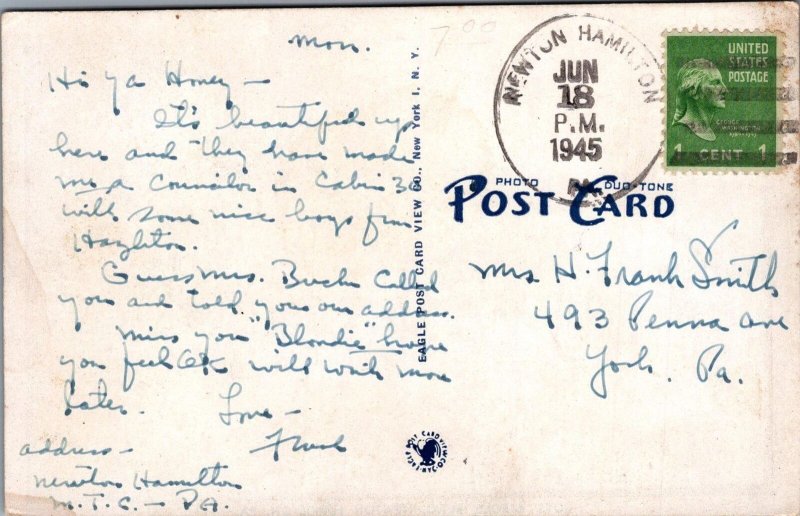 Mon.
Hi Ya Honey —
It's beautiful up
here and they have made
me a Councilor in Cabin 30
with some nice boys from
Hazleton.
Guess Mrs. called
you and told you our address.
Miss you "Blondie" hope
you feel OK will write more
later. Love —
Frank
address —
Newton Hamilton
M.T.C. — PA.
EAGLE POST CARD VIEW CO., New York 1, N. Y.
7.00
NEWTON HAMILTON
JUN
18
P.M.
1945
PA.
UNITED
STATES
POSTAGE
GEORGE
WASHINGTON
1 CENT 1
PHOTO DUO-TONE
POST CARD
Mrs H. Frank Smith
493 Penna ave
York, Pa.